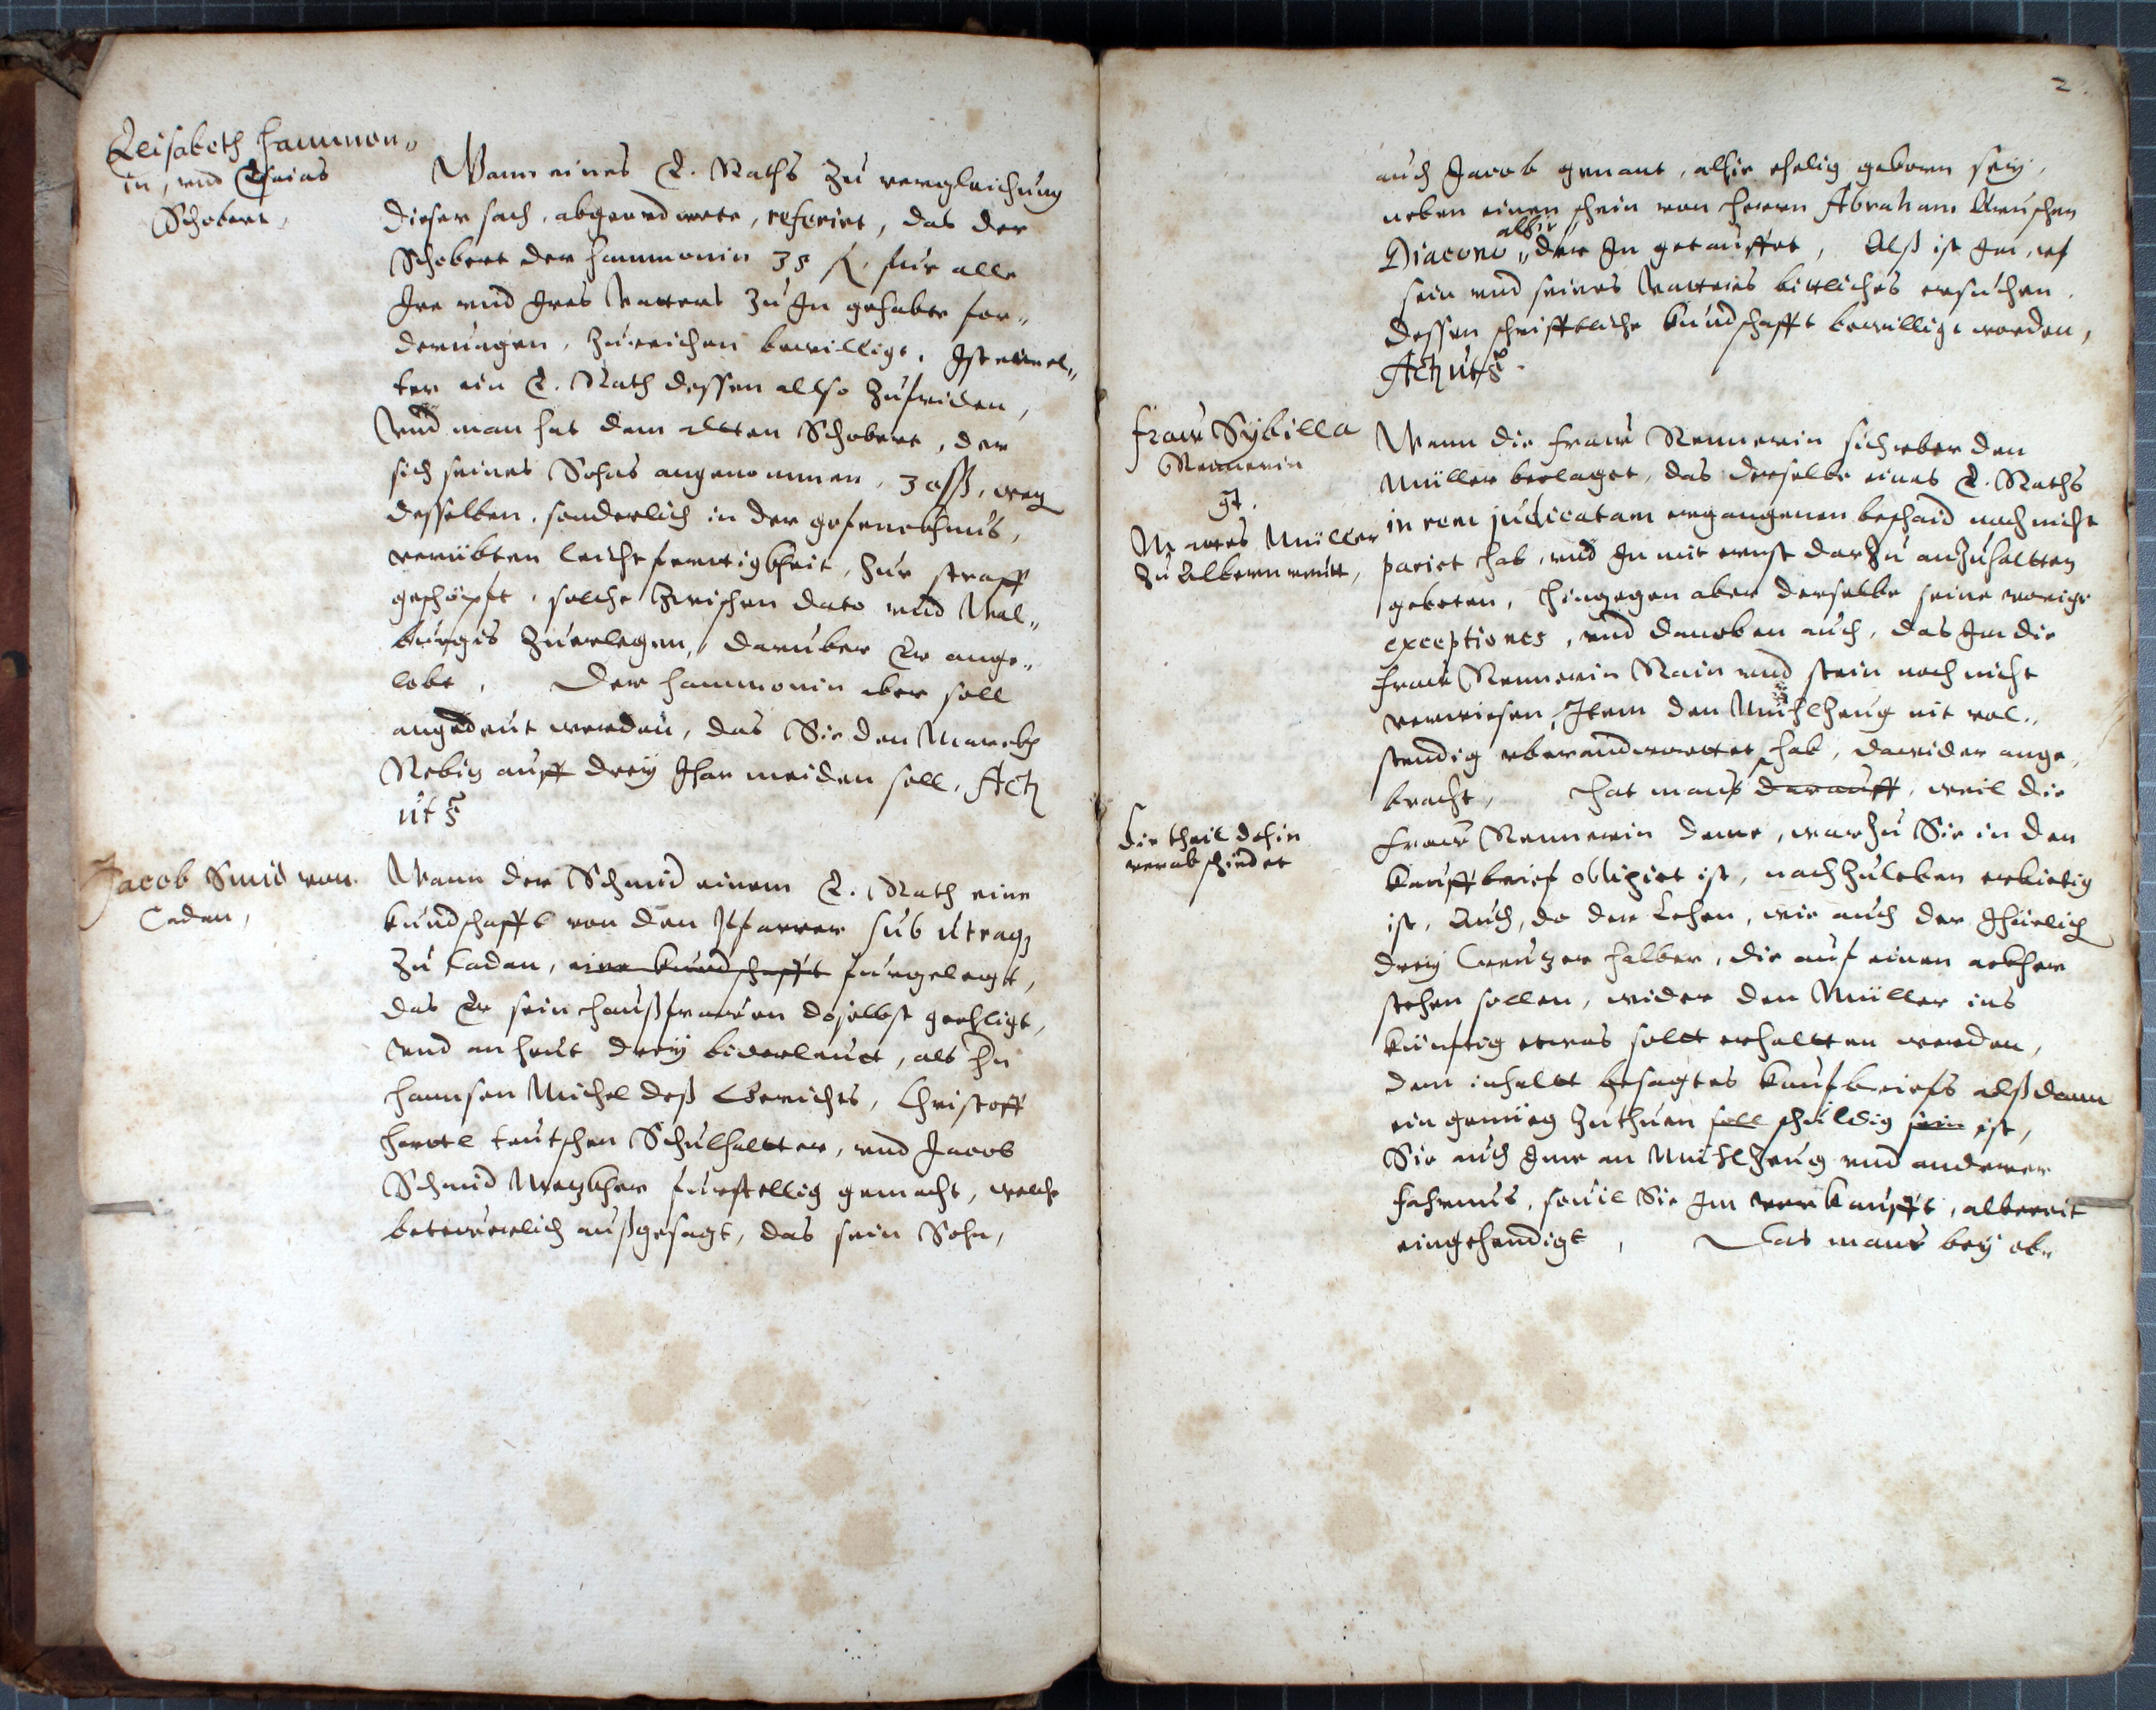 Elisabeth Hammon„
in, vnd Esaias
Schobert,
Wann eines E. Raths zu vergleichung
dieser sach, abgeordnete, referirt, das der
Schobert der Hammonin 35 fl. für alle
Ire vnd Ires Vatters zu Im gehabte for„
derungen, zureichen bewilligt. Ist
ter ein E. Rath dessen allso zufriden,
Vnd man hat dem altten Schobert, der
sich seines Sohns angenommen, 30 ß, weg
desselben, sonderlich in der gefencknus,
verübten leichtfertigkheit, zur straff
geschöpft, solche zwischen dato vnd Wal„
burgis zuerlegen, daruber Er ange„
lobt, Der Hammonin aber soll
angedeut werden, das Sie den Marckh
Rebiz auff drey Jhar meiden soll, Act
ut s
Jacob Smid von
Caden,
Wann der Schmid einem E. Rath eine
kundschafft von dem Pfarrer sub utraq
zu Cadan, eine kundschafft furgelegt,
das Er sein haußfrauen doselbst geehligt,
Vnd an heut drey biderleut, als Hn
Hannsen Michel deß Gerichts, Christoff
Hertl teutschen Schulhaltter, vnd Jacob
Schmid Metzkher furstellig gemacht, welche
betewerlich außgesagt, das sein Sohn,
2.
auch Jacob genant, alhie ehelig geborn sey,
neben einen schein von Herrn Abraham
alhie
Diacono „ der In getauffet, Alß ist Im, vf
sein vnd seines Vatters bittliches ersuchen,
dessen schrifftliche kundschafft bewilligt worden,
Act ut s
Fraw Sybilla
Rennerin
Martes Müller
zu Albernreutt,
Wann die Fraw Rennerin sich vber den
Müller beclaget, das derselbe eines E. Raths
in rem judicatam ergangenen beschaid noch nicht
parirt hab, vnd In mit ernst darzu anzuhaltten
gebeten, Hingegen aber derselbe seine vorige
exceptiones, vnd daneben auch, das Im die
Fraw Rennerin Rain vnd stein noch nicht
verwiesen, Item den Mühlzeug nit vol„
stendig vberandworttet hab, dawider ange„
bracht, Hat mans darauff, weil die
die theil dohin
verabschiedet
Fraw Rennerin deme, warzu Sie in den
Kauffbrief obligirt ist, nachzuleben erbietig
ist, Auch, do der Lehen, wie auch der Jhürlich
drey Creutzer halber, die auf einen ackher
stehen sollen, wider den Müller ins
künftig etwas sollt erhaltten werden,
dem inhallt besagtes kaufbriefs alßdann
ein genüeg zuthuen soll schuldig sein ist,
Sie auch Ime an Mühlzeug vnd anderer
fahrnus, souil Sie Im verkaufft, albereit
eingehendigt, Das mans bey ob„